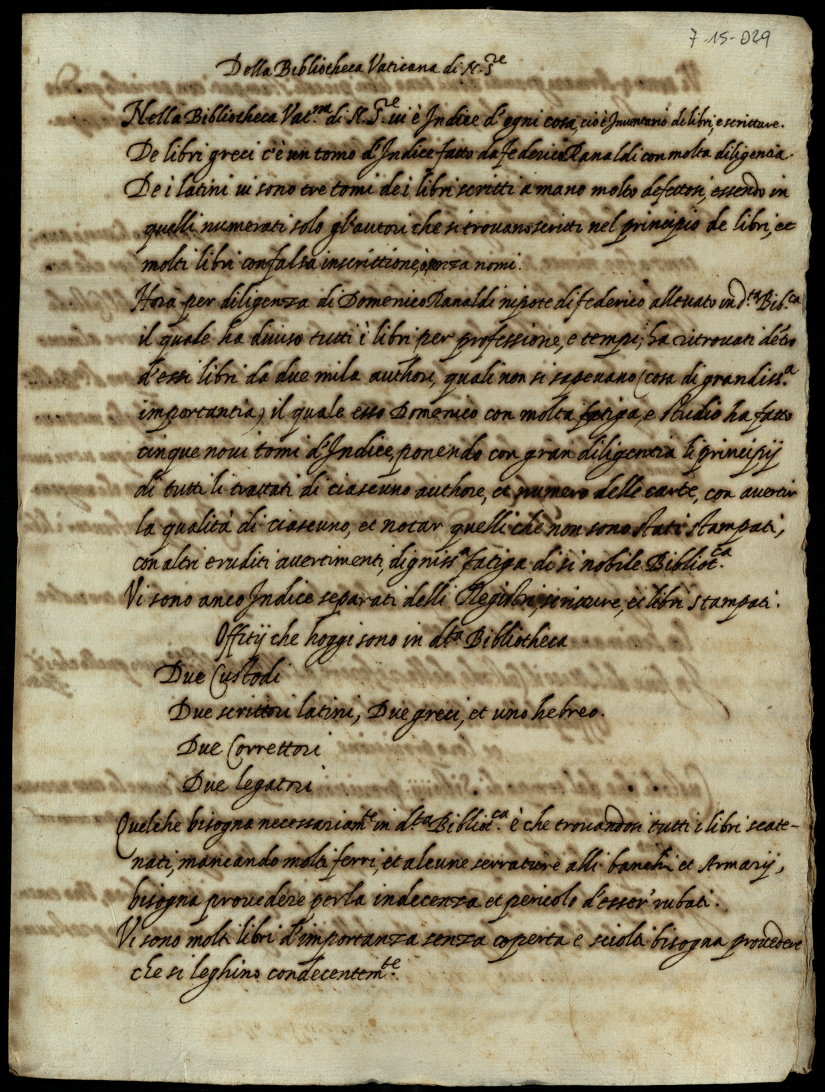 7-15-029
Della Bibliotheca Vaticana di N. S.re
Nella Bibliotheca Vat.na di N. S.re ui è Indice d'ogni cosa, cioè Inuentario di libri, e scritture.
De libri greci c'è un tomo d'Indice fatto da federico Ranaldi con molta diligencia.
De i latini ui sono tre tomi de i libri scritti a mano molto defettosi, essendo in
quelli numerati solo gl'autori che si trouano scritti nel principio de libri, et
molti libri con falsa inscrittione, o senza nomi.
Hora per diligenza di Domenico Ranaldi nipote di federico alleuato in d.ta Bib.ca
il quale ha diuiso tutti i libri per professione, e tempi; ha ritrouati dẽtro
d'essi libri da due mila authori, quali non si sapeuano (cosa di grandiss.a
importantia) il quale esso Domenico con molta fatiga, e studio ha fatto
cinque noui tomi d'Indice, ponendo con gran diligentia li principij
di tutti li trattati di ciascuno authore, et numero delle carte, con auertir
la qualità di ciascuno, et notar quelli che non sono stati stampati,
con altri eruditi auertimenti, digniss.a fatiga di si nobile Bibliot.ca
Vi sono anco Indice separati delli Registri, scritture, et libri stampati.
Offitij che hoggi sono in d.ta Bibliotheca
Due Custodi
Due scrittori latini, Due greci, et uno hebreo.
Due Correttori
Due legatori
Quelche bisogna necessariam.te in d.ta Bibliot.ca è che trouandosi tutti i libri scate-
nati, mancando molti ferri, et alcune serrature alli banchi et Armarij,
bisogna prouedere per la indecenza et pericolo d'esser' rubati.
Vi sono molti libri d'importanza senza coperta e sciolti bisogna prouedere
che si leghino condecentem.te